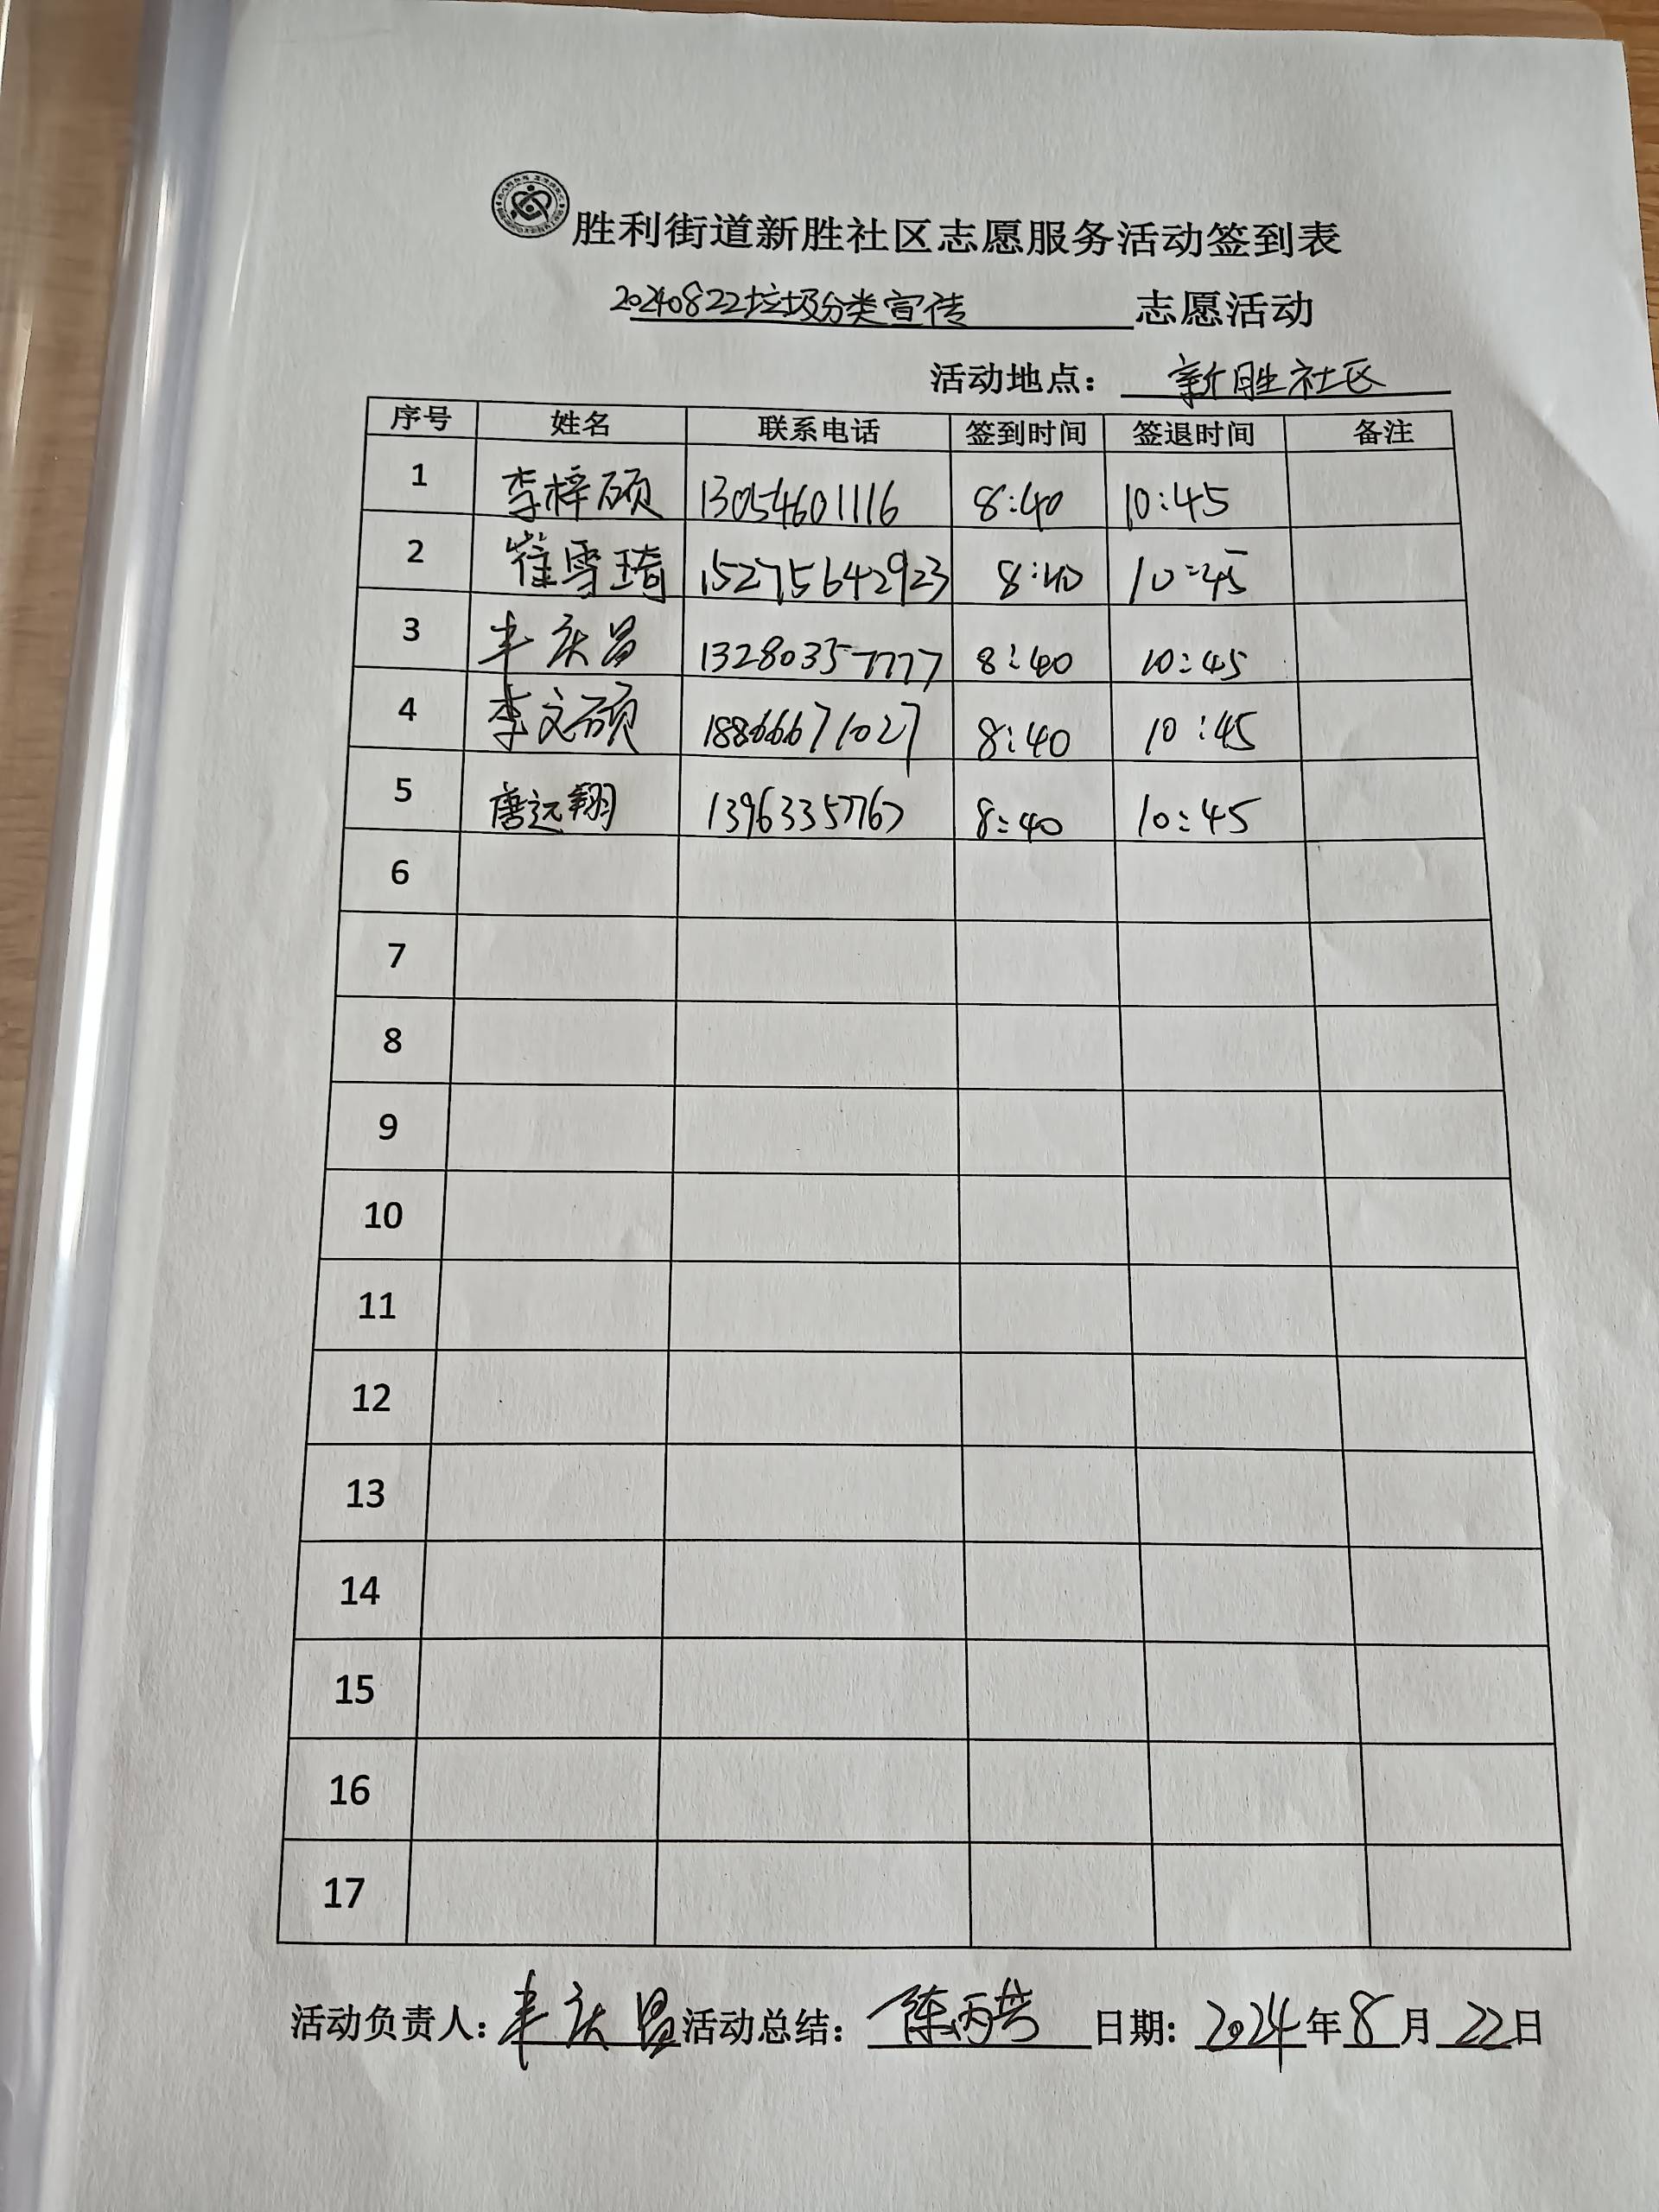 胜利街道新胜社区志愿服务活动签到表
20240822垃圾分类宣传 志愿活动
活动地点： 新胜社区
序号 姓名 联系电话 签到时间 签退时间 备注
1 李梓硕 13054601116 8:40 10:45
2 崔雪琦 15275642923 8:40 10:45
3 丰庆昌 13280357777 8:40 10:45
4 李文硕 18866671027 8:40 10:45
5 唐远翔 13963357767 8:40 10:45
6
7
8
9
10
11
12
13
14
15
16
17
活动负责人：丰庆昌 活动总结： 陈丙芳 日期： 2024年8月22日